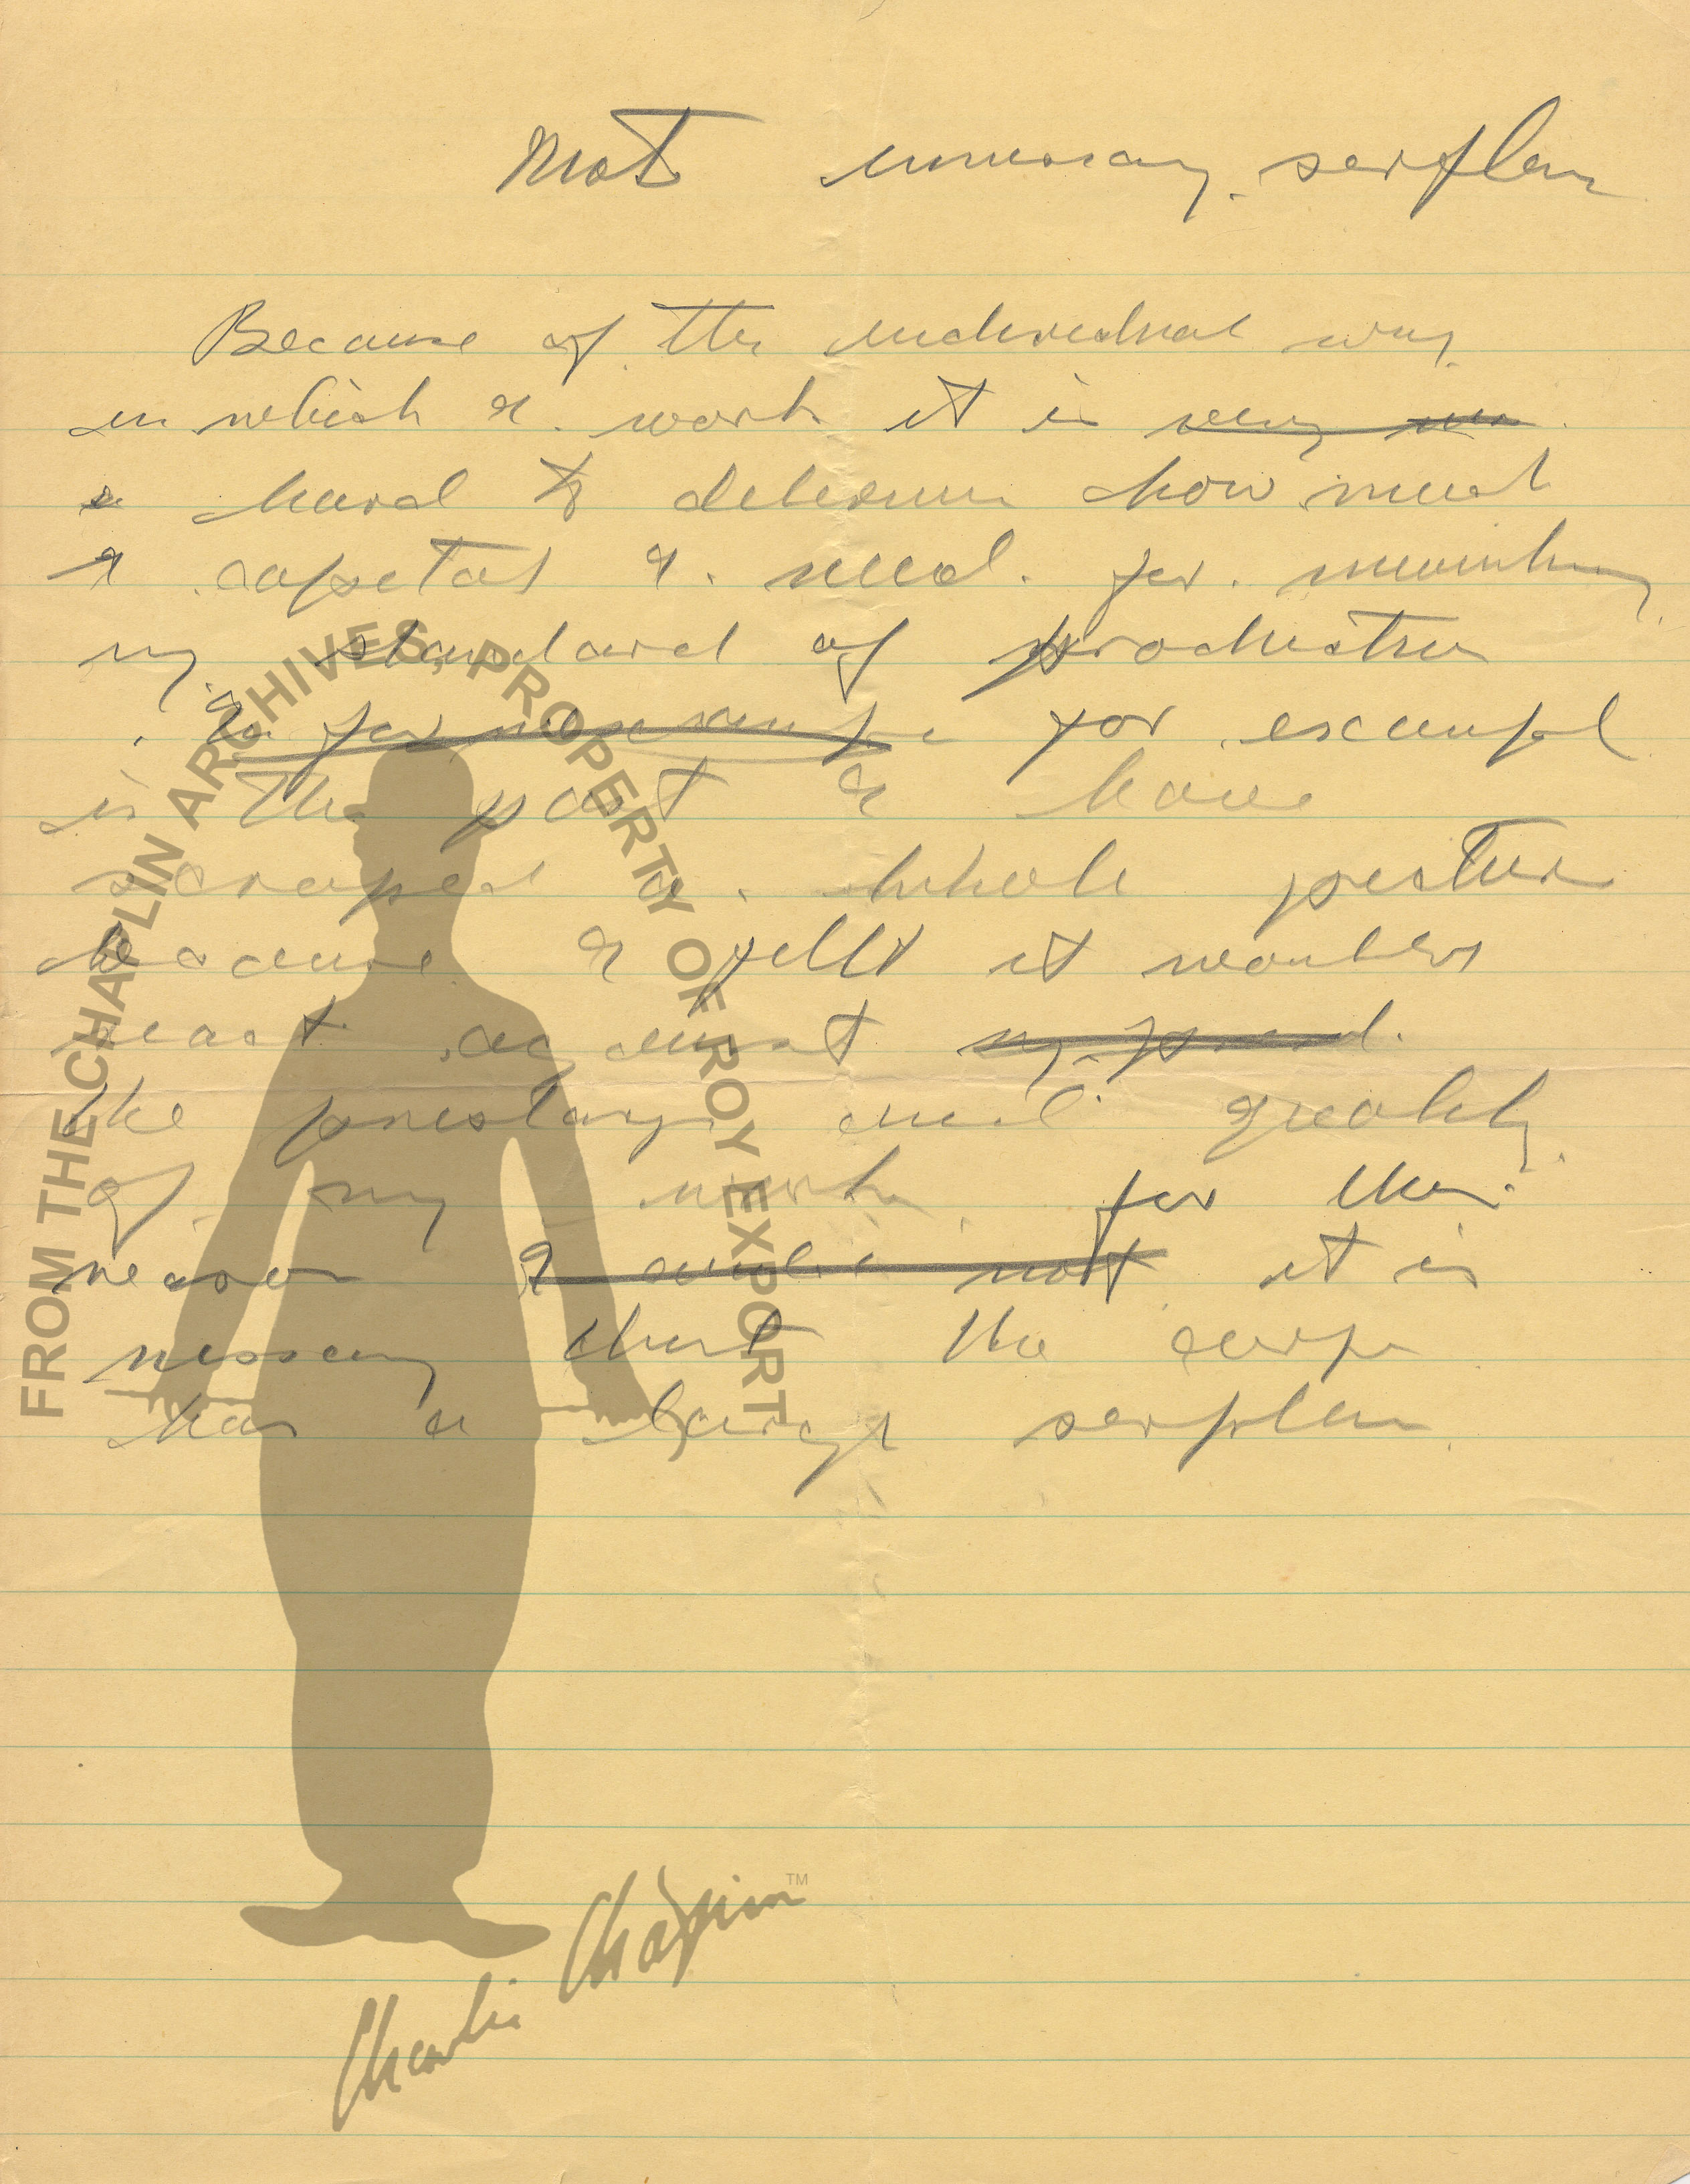 Not unnessary serplus
Because of the individual way
in which I work it is very
hard to determin how much
capital I need for
my standard of production
for exampel
in the past I have
scraped a whole picture
because I fellt it would
react against
the prestage and quality
of my work. for this
reason I not it is
nessary that the corp
has a large serplus.
FROM THE CHAPLIN ARCHIVES, PROPERTY OF ROY EXPORT
Charlie Chaplin™